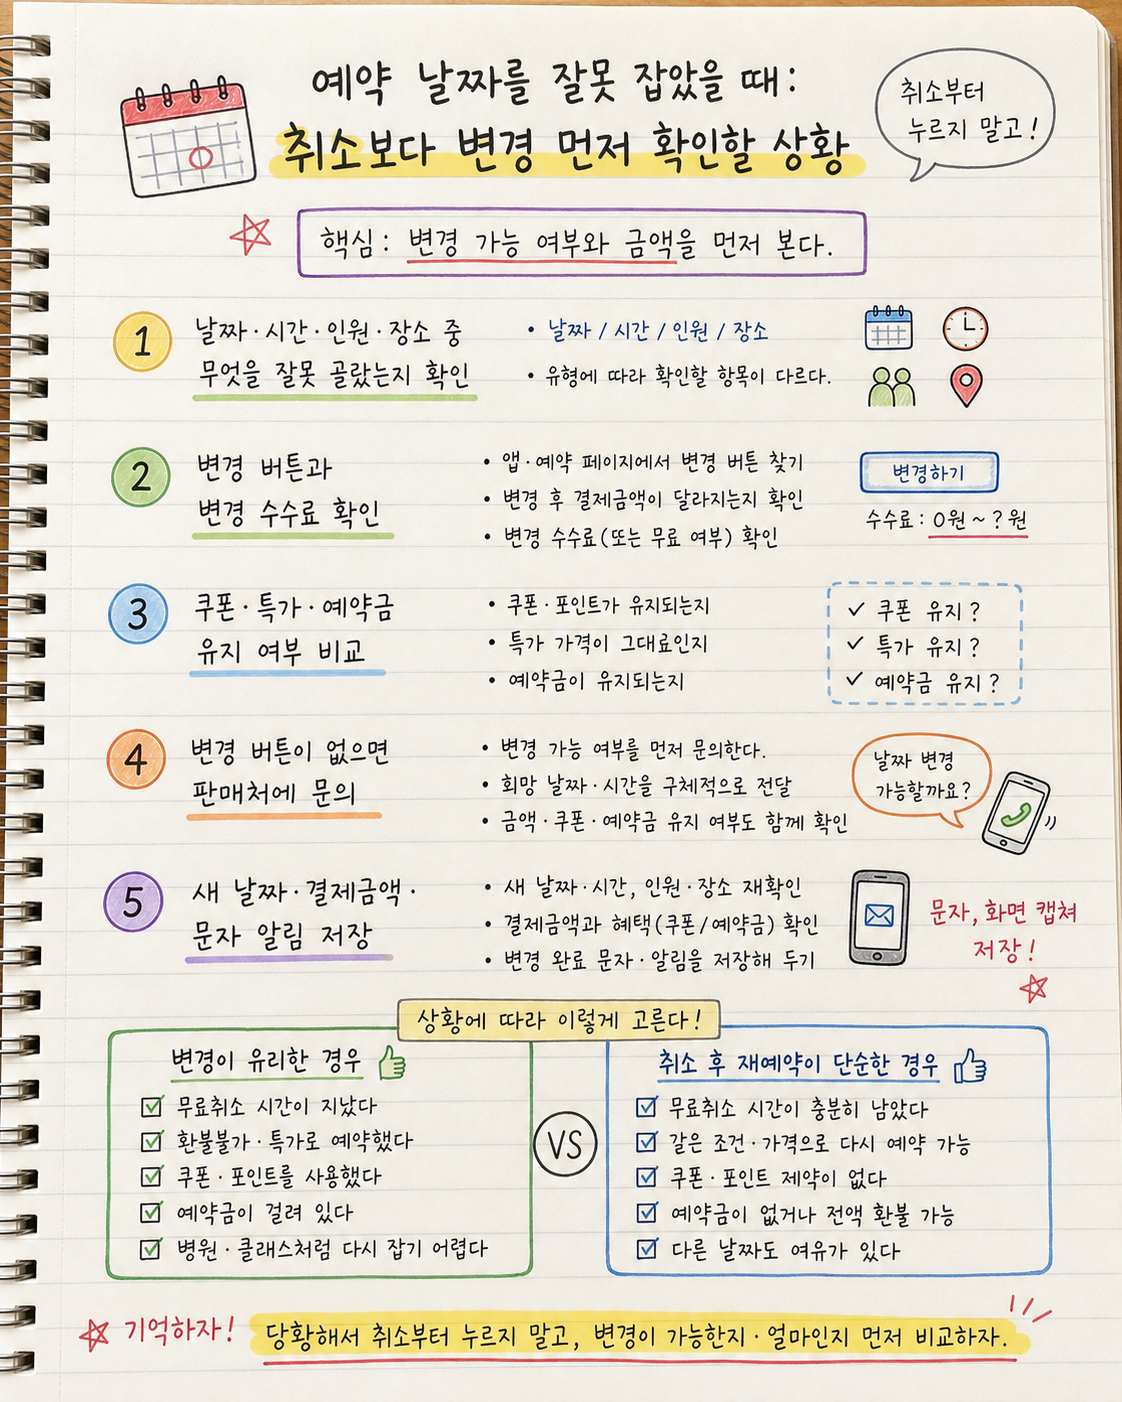 예약 날짜를 잘못 잡았을 때:
취소보다 변경 먼저 확인할 상황
취소부터
누르지 말고!
핵심: 변경 가능 여부와 금액을 먼저 본다.
1
날짜·시간·인원·장소 중
무엇을 잘못 골랐는지 확인
• 날짜 / 시간 / 인원 / 장소
• 유형에 따라 확인할 항목이 다르다.
2
변경 버튼과
변경 수수료 확인
• 앱·예약 페이지에서 변경 버튼 찾기
• 변경 후 결제금액이 달라지는지 확인
• 변경 수수료(또는 무료 여부) 확인
변경하기
수수료: 0원 ~ ? 원
3
쿠폰·특가·예약금
유지 여부 비교
• 쿠폰·포인트가 유지되는지
• 특가 가격이 그대로인지
• 예약금이 유지되는지
✓ 쿠폰 유지?
✓ 특가 유지?
✓ 예약금 유지?
4
변경 버튼이 없으면
판매처에 문의
• 변경 가능 여부를 먼저 문의한다.
• 희망 날짜·시간을 구체적으로 전달
• 금액·쿠폰·예약금 유지 여부도 함께 확인
날짜 변경
가능할까요?
5
새 날짜·결제금액·
문자 알림 저장
• 새 날짜·시간, 인원·장소 재확인
• 결제금액과 혜택(쿠폰/예약금) 확인
• 변경 완료 문자·알림을 저장해 두기
문자, 화면 캡쳐
저장!
상황에 따라 이렇게 고른다!
변경이 유리한 경우
☑ 무료취소 시간이 지났다
☑ 환불불가·특가로 예약했다
☑ 쿠폰·포인트를 사용했다
☑ 예약금이 걸려 있다
☑ 병원·클래스처럼 다시 잡기 어렵다
VS
취소 후 재예약이 단순한 경우
☑ 무료취소 시간이 충분히 남았다
☑ 같은 조건·가격으로 다시 예약 가능
☑ 쿠폰·포인트 제약이 없다
☑ 예약금이 없거나 전액 환불 가능
☑ 다른 날짜도 여유가 있다
기억하자!
당황해서 취소부터 누르지 말고, 변경이 가능한지·얼마인지 먼저 비교하자.